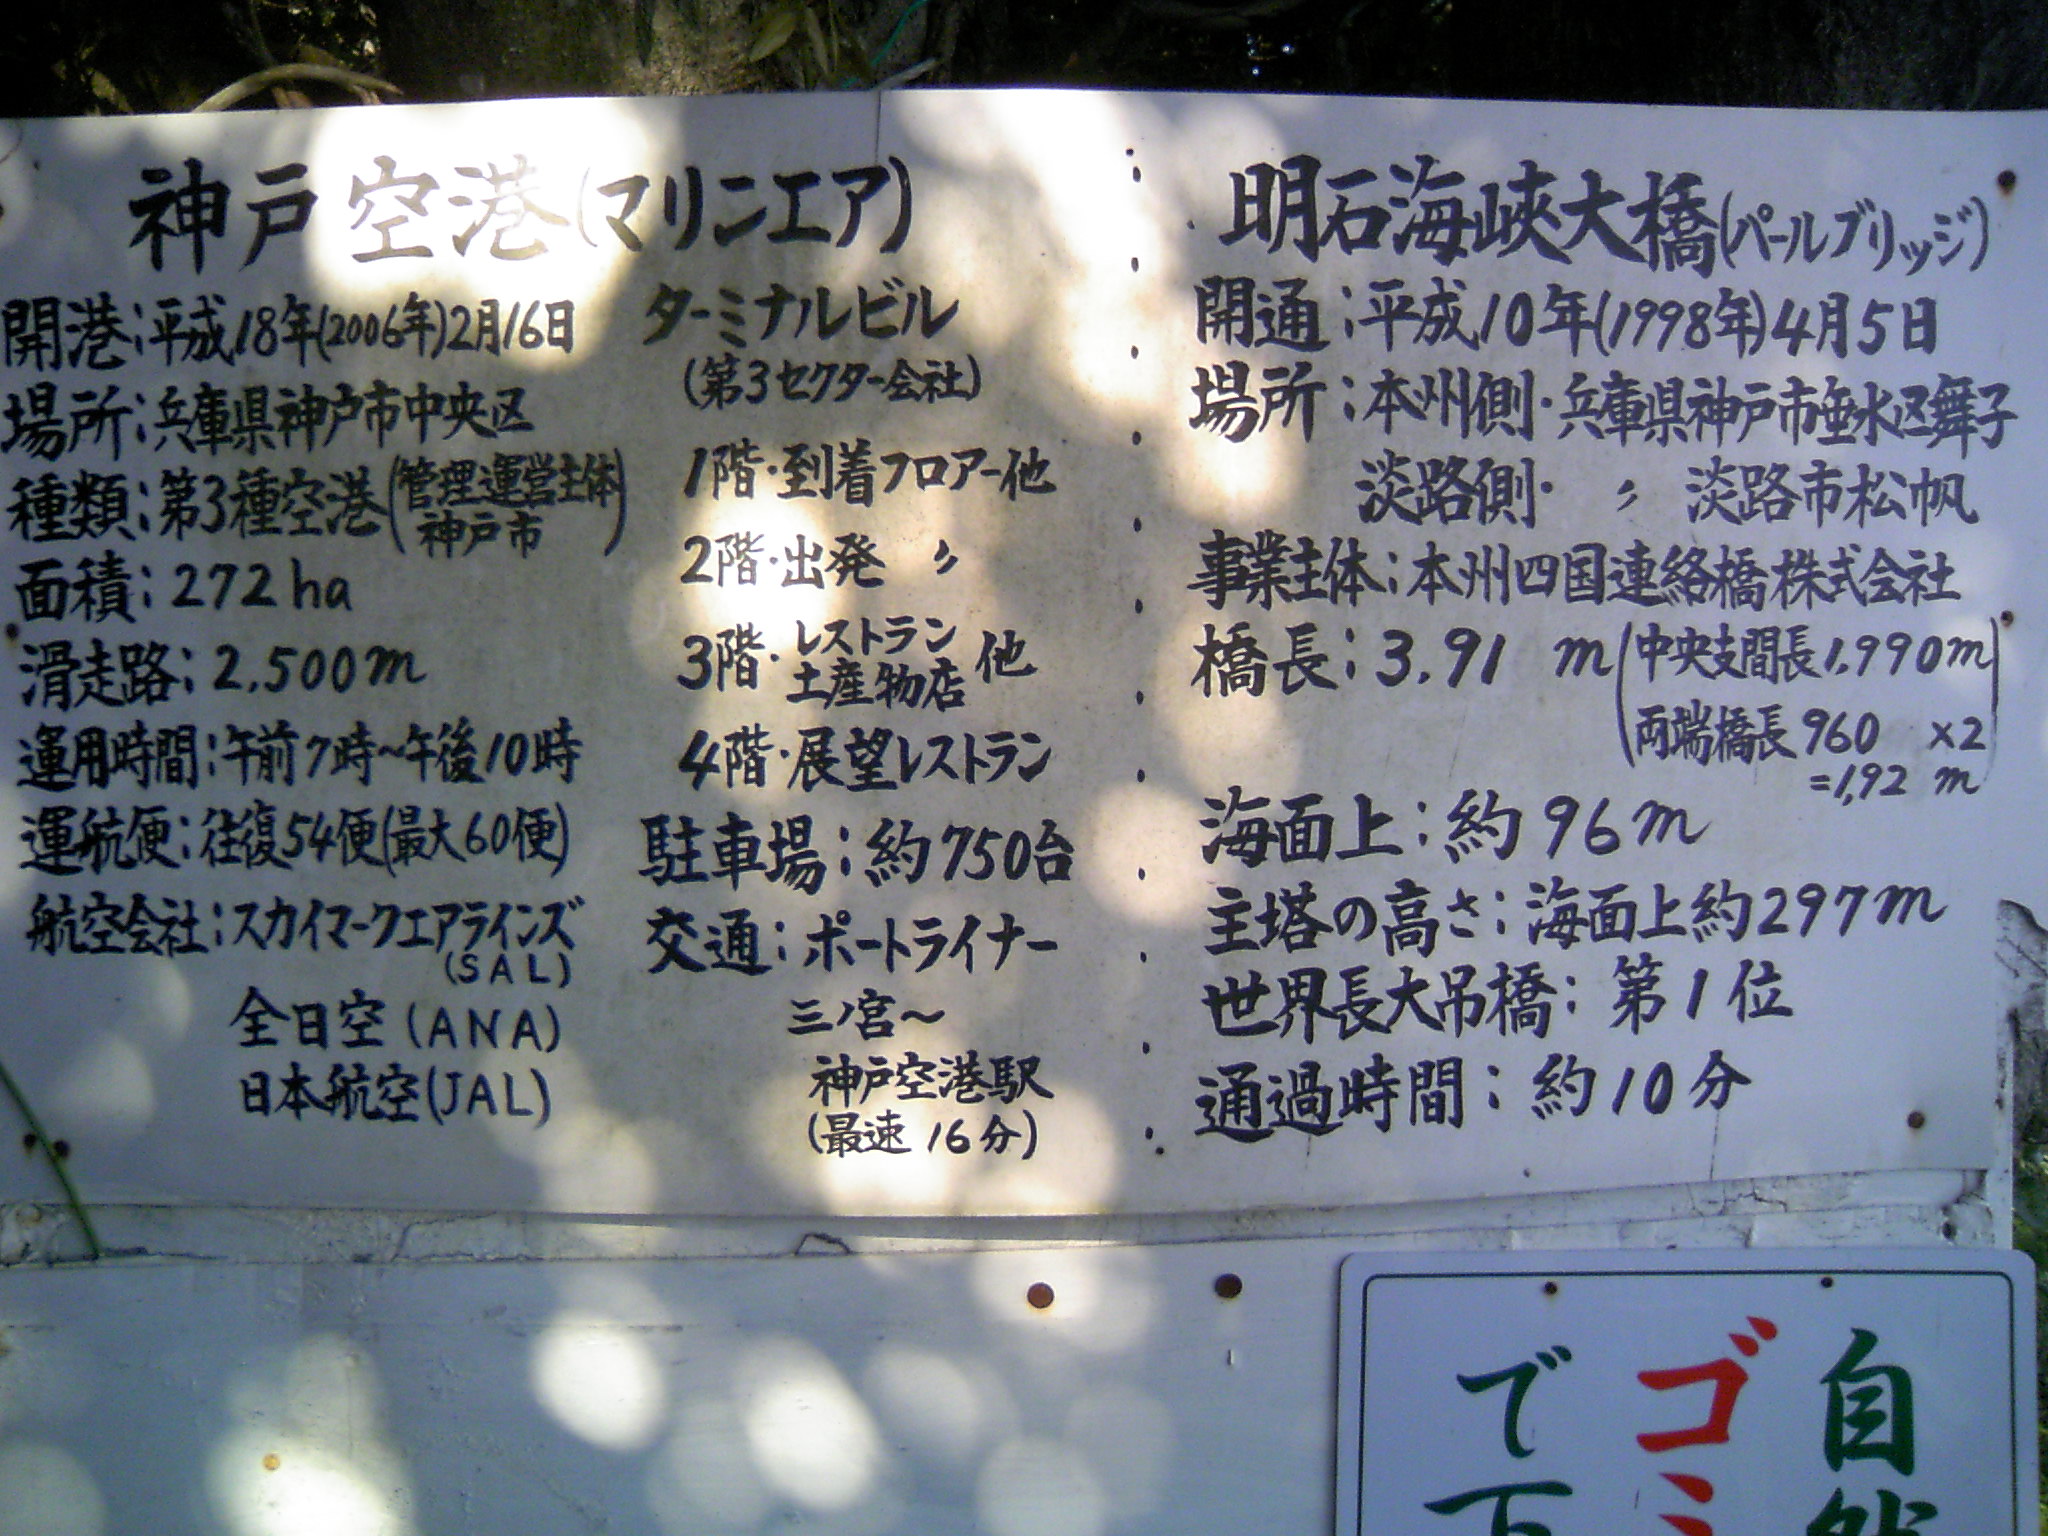 神戸空港(マリンエア)
開港:平成18年(2006年)2月16日
場所:兵庫県神戸市中央区
種類:第3種空港(管理運営主体
神戸市)
面積:272ha
滑走路:2,500m
運用時間:午前7時~午後10時
運航便:往復54便(最大60便)
航空会社:スカイマークエアラインズ
(SAL)
全日空(ANA)
日本航空(JAL)
ターミナルビル
(第3セクター会社)
1階・到着フロアー他
2階・出発 〃
3階・レストラン
土産物店 他
4階・展望レストラン
駐車場:約750台
交通:ポートライナー
三ノ宮~
神戸空港駅
(最速 16分)
明石海峡大橋(パールブリッジ)
開通:平成10年(1998年)4月5日
場所:本州側・兵庫県神戸市垂水区舞子
淡路側・ 〃 淡路市松帆
事業主体:本州四国連絡橋株式会社
橋長:3,91 m(中央支間長1,990m
両端橋長960 ×2
=1,92 m)
海面上:約96m
主塔の高さ:海面上約297m
世界長大吊橋:第1位
通過時間:約10分
自然
ゴミ
で下